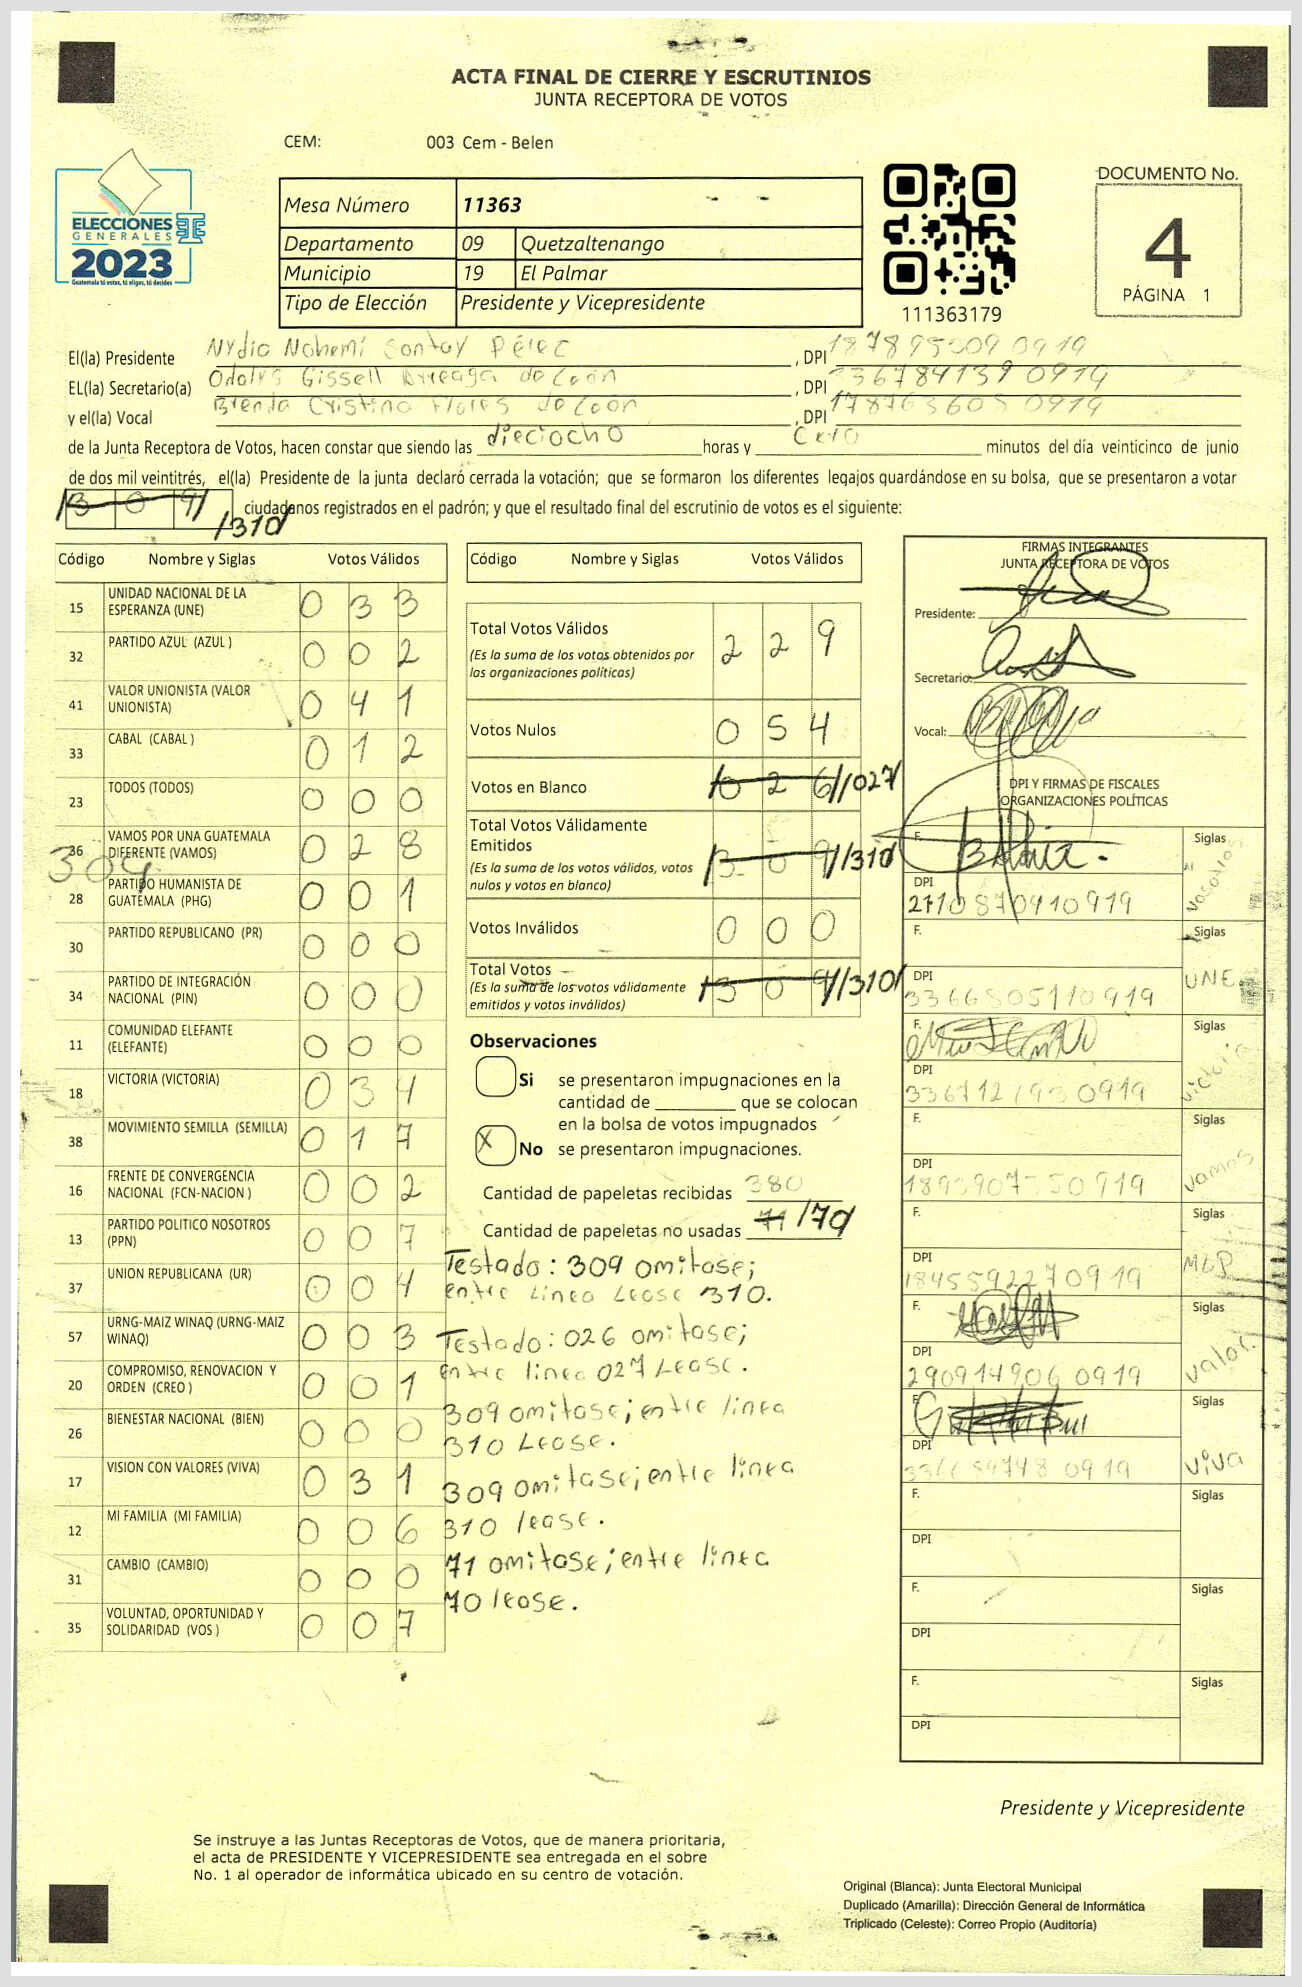 ACTA FINAL DE CIERRE Y ESCRUTINIOS
JUNTA RECEPTORA DE VOTOS
CEM: 003 Cem - Belen
ELECCIONES
GENERALES
2023
Guatemala tú votas, tú eliges, tú decides
Mesa Número 11363
Departamento 09 Quetzaltenango
Municipio 19 El Palmar
Tipo de Elección Presidente y Vicepresidente
111363179
DOCUMENTO No.
4
PÁGINA 1
El(la) Presidente Nydia Nohemí Contay Pérez , DPI
EL(la) Secretario(a) Odalys Gissell Arreaga de León , DPI 336784139 0919
y el(la) Vocal Brenda Cristina Flores de León , DPI 178763605 0919
de la Junta Receptora de Votos, hacen constar que siendo las dieciocho horas y cero minutos del día veinticinco de junio
de dos mil veintitrés, el(la) Presidente de la junta declaró cerrada la votación; que se formaron los diferentes legajos guardándose en su bolsa, que se presentaron a votar
309 /310/ ciudadanos registrados en el padrón; y que el resultado final del escrutinio de votos es el siguiente:
Código Nombre y Siglas Votos Válidos
15 UNIDAD NACIONAL DE LA ESPERANZA (UNE) 0 3 3
32 PARTIDO AZUL (AZUL ) 0 0 2
41 VALOR UNIONISTA (VALOR UNIONISTA) 0 4 1
33 CABAL (CABAL ) 0 1 2
23 TODOS (TODOS) 0 0 0
36 VAMOS POR UNA GUATEMALA DIFERENTE (VAMOS) 0 2 8
304
28 PARTIDO HUMANISTA DE GUATEMALA (PHG) 0 0 1
30 PARTIDO REPUBLICANO (PR) 0 0 0
34 PARTIDO DE INTEGRACIÓN NACIONAL (PIN) 0 0 0
11 COMUNIDAD ELEFANTE (ELEFANTE) 0 0 0
18 VICTORIA (VICTORIA) 0 3 4
38 MOVIMIENTO SEMILLA (SEMILLA) 0 1 7
16 FRENTE DE CONVERGENCIA NACIONAL (FCN-NACION ) 0 0 2
13 PARTIDO POLITICO NOSOTROS (PPN) 0 0 7
37 UNION REPUBLICANA (UR) 0 0 4
57 URNG-MAIZ WINAQ (URNG-MAIZ WINAQ) 0 0 3
20 COMPROMISO, RENOVACION Y ORDEN (CREO ) 0 0 1
26 BIENESTAR NACIONAL (BIEN) 0 0 0
17 VISION CON VALORES (VIVA) 0 3 1
12 MI FAMILIA (MI FAMILIA) 0 0 6
31 CAMBIO (CAMBIO) 0 0 0
35 VOLUNTAD, OPORTUNIDAD Y SOLIDARIDAD (VOS ) 0 0 7
Código Nombre y Siglas Votos Válidos
Total Votos Válidos 2 2 9
(Es la suma de los votos obtenidos por las organizaciones políticas)
Votos Nulos 0 5 4
Votos en Blanco 0 2 6 //027/
Total Votos Válidamente Emitidos 3 0 9 //310/
(Es la suma de los votos válidos, votos nulos y votos en blanco)
Votos Inválidos 0 0 0
Total Votos 3 0 9 //310/
(Es la suma de los votos válidamente emitidos y votos inválidos)
Observaciones
Si se presentaron impugnaciones en la
cantidad de ________ que se colocan
en la bolsa de votos impugnados
X No se presentaron impugnaciones.
Cantidad de papeletas recibidas 380
Cantidad de papeletas no usadas 71 /70/
Testado: 309 omitase;
entre linea Lease 310.
Testado: 026 omitase;
entre linea 027 Lease.
309 omitase; entre linea
310 Lease.
309 omitase; entre linea
310 lease.
71 omitase; entre linea
70 lease.
FIRMAS INTEGRANTES
JUNTA RECEPTORA DE VOTOS
Presidente:
Secretario:
Vocal:
DPI Y FIRMAS DE FISCALES
ORGANIZACIONES POLÍTICAS
F. Siglas
DPI
F. Siglas UNE
DPI 3366805110919
F. Siglas victoria
DPI
F. Siglas vamos
DPI
F. Siglas MLP
DPI 1845592270919
F. Siglas valor
DPI 290914906 0919
F. Siglas VIVA
DPI
F. Siglas
DPI
F. Siglas
DPI
F. Siglas
DPI
Presidente y Vicepresidente
Se instruye a las Juntas Receptoras de Votos, que de manera prioritaria,
el acta de PRESIDENTE Y VICEPRESIDENTE sea entregada en el sobre
No. 1 al operador de informática ubicado en su centro de votación.
Original (Blanca): Junta Electoral Municipal
Duplicado (Amarilla): Dirección General de Informática
Triplicado (Celeste): Correo Propio (Auditoría)